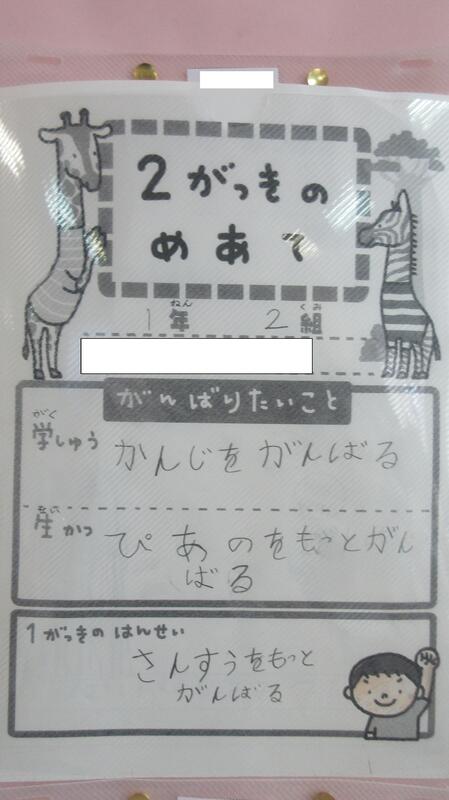 2がっきの
めあて
ねん くみ
1年 2組
がんばりたいこと
がく
学しゅう
かんじを がんばる
せい
生かつ
ぴあのをもっとがん
ばる
1がっきの はんせい
さんすうをもっと
がんばる